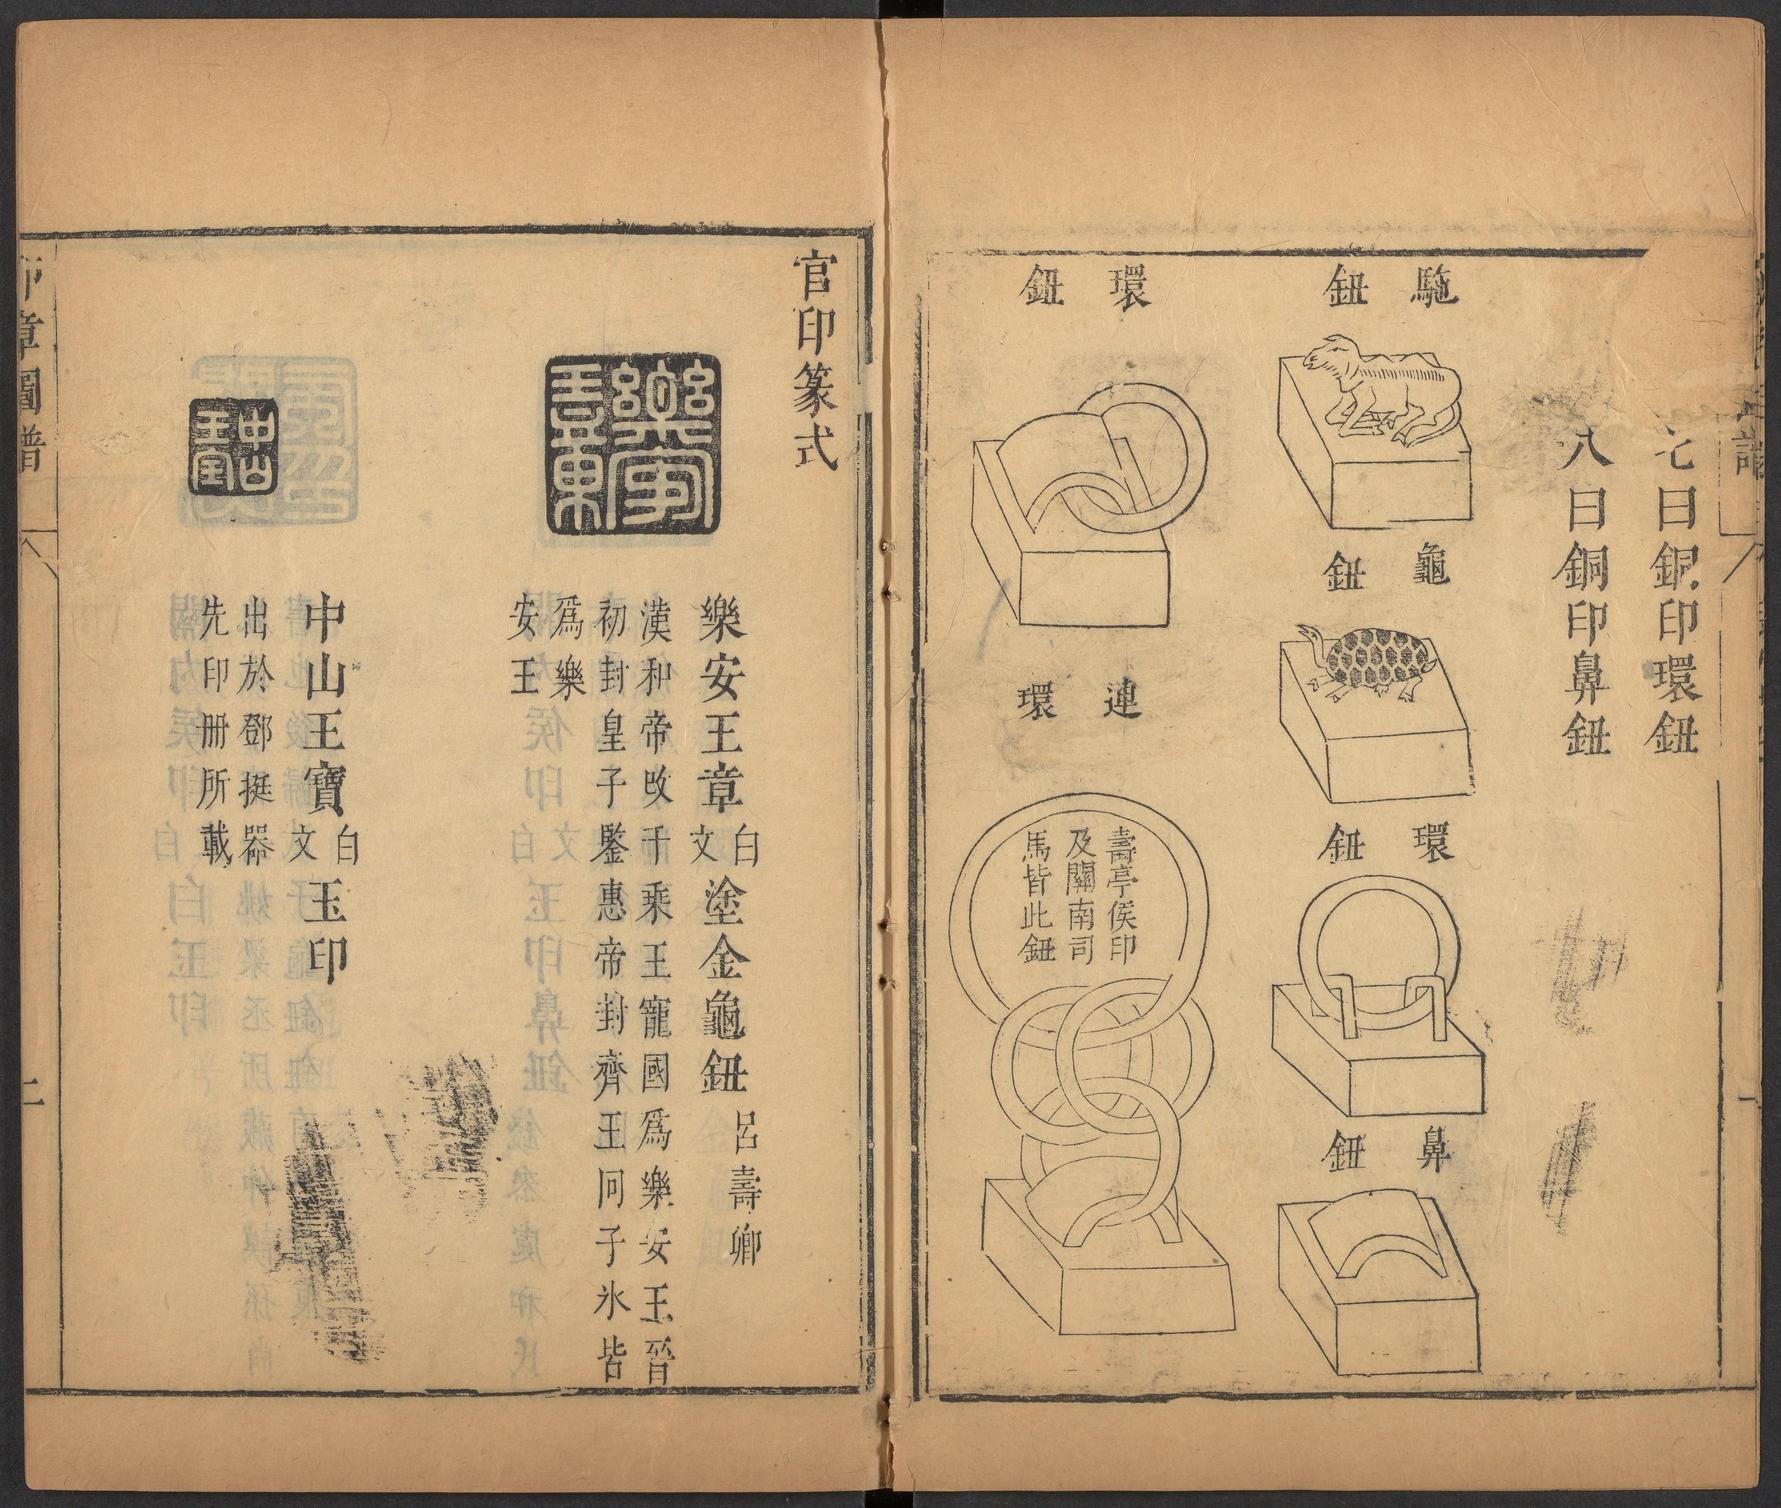 七曰銀印環鈕
八曰銅印鼻鈕
駞鈕
龜鈕
環鈕
鼻鈕
環鈕
連環
壽亭侯印
及關南司
馬皆此鈕
官印篆式
樂安王章
樂安王章白文塗金龜鈕呂壽卿
漢和帝攺千乘王寵國爲樂安王晉
初封皇子鑒惠帝封齊王冋子氷皆
爲樂
安王
中山王寶
中山王寶白文玉印
出於鄧挺器
先印册所載
印章圖譜
二